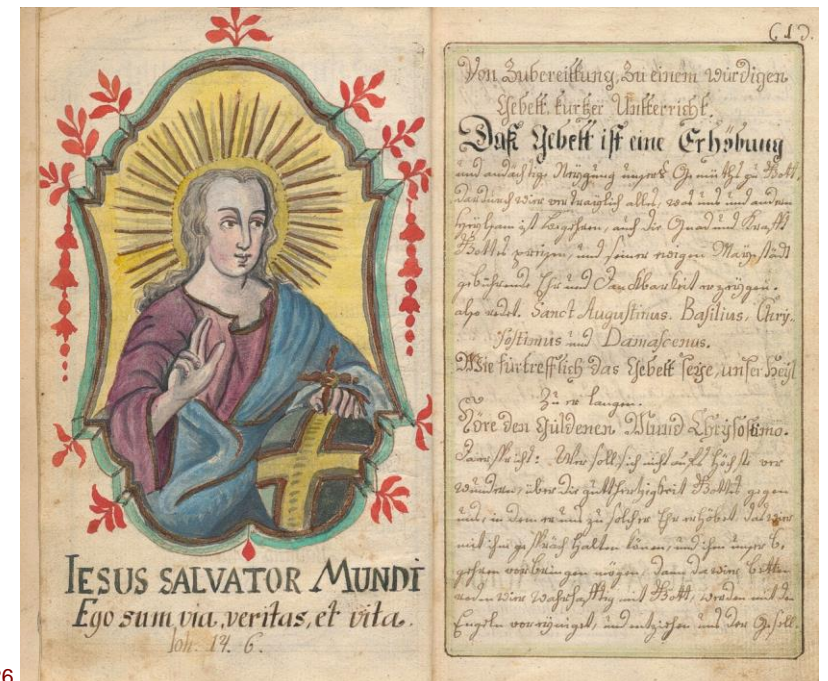 IESUS SALVATOR MUNDI
Ego sum via, veritas, et vita.
Joh: 14. 6.
(1).
Von Zubereittung, Zu einem würdigen
Gebett, kurtzer Untterricht.
Daß Gebett ist eine Erhöbung
und andächtige Neÿgung unserß Gemüths zu Gott,
dardurch wier vertraüglich alles, was uns und andern
heÿlsam ist begehren, auch die Gnad und Krafft
Gottes preisen, und seiner ewigen Maÿestädt
gebührende Ehr und Danckbarkeit erzeÿgen.
also redet. Sanct Augustinus. Basilius, Chrÿ-
sostimus und Damascenus.
Wie fürtrefflich das Gebett seÿe, unser Heÿl
Zu er langen.
Höre den Güldenen Mund Chrÿsostimo.
Dann spricht: Wer soll sich nicht aufs Höchste ver
wundern, über die gutthertzigkeit Gottes gegen
uns, in dem er uns zu solcher Ehr erhöbet, das wier
mit ihm gespräch halten könen, und ihm unser be
gehren vorbringen mögen, dann da wier betten
reden wier wahrhafftig mit Gott, werden mit den
Engeln vereÿniget, und entziehen uns der Gesell